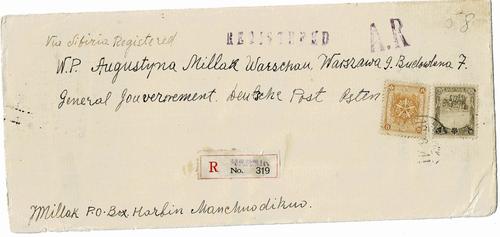 Via Sibiria Registered
REGISTERED
A.R
W.P. Augustyna Millak Warschau, Warszawa 9.
General Gouvernement. Deutsche Post Osten
R
No. 319
Millak P.O. Box Harbin Manchoudikuo.